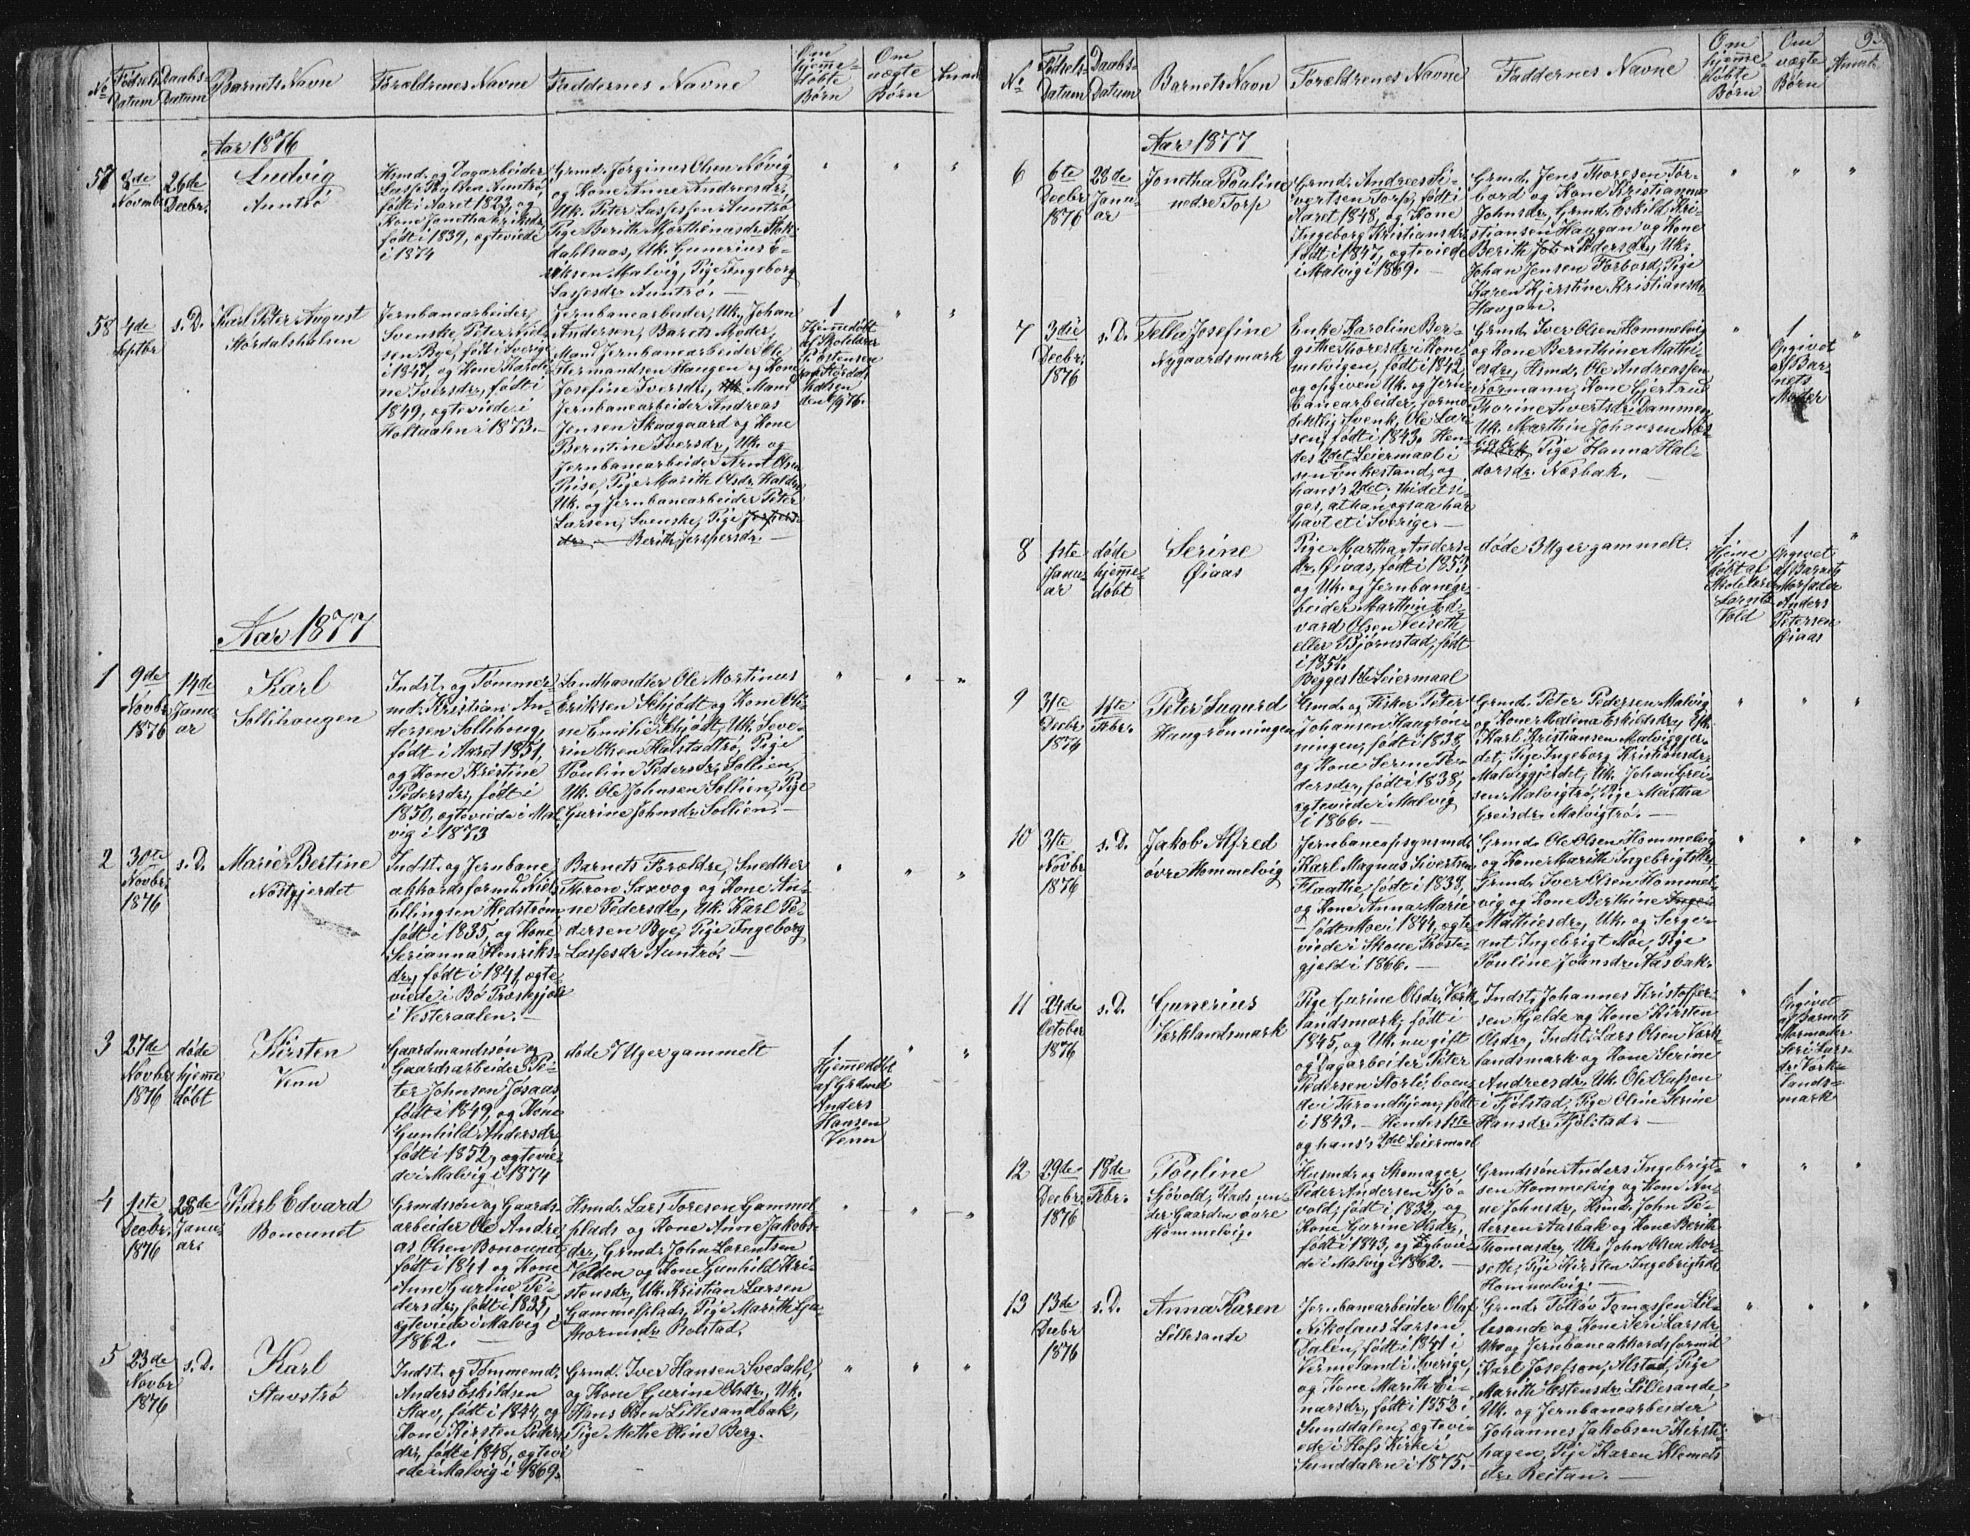 No
Fødsels Datum
Daabs Datum
Barnets Navn
Forældrenes Navne
Faddernes Navne
Om hjemme døbte Børn
Om uægte Børn
Anmk
Aar 1876
57
8de Novmbr
26de Decbr.
Ludvig
Auntrø
Hsmd. og Dagarbeider
født i Aaret 1823, og
født i 1839, egteviede
i 1874
Grmd. Jørginus Olsen Nøvig
og Kone Anne Andreasdr,
Uk. Peter Lassesen Auntrø
Pige Berith
Uk. Gunerius E-
riksen Malvig, Pige Ingeborg
Lassesdr. Auntrø. —
58
4de Septbr
s. D.
Karl Peter August
Jernbanearbeider,
Svenske, Peter Niel-
sen Bye, født i Sverige
i 1847, og Kone Karoli-
ne Iversdr, født i
1849, egteviede i
Holtaalen i 1873. —
Jernbanearbeider, Uk. Johan
Andersen, Barnets Moder,
Mand Jernbanearbeider Ole
Hermandsen Haugen og Kone
Josefine Iversdr, Mand
Jernbanearbeider Andreas
Jensen Skaagaard og Kone
Berntine Iversdr, Uk. og
Jernbanearbeider Arnt Olsen
Pige Marith Olsdr
Uk. og Jernbanearbeider Peter
Larsen, Svenske, Pige
— Berith Jespersdr. —
1
Hjemmedøbt
Aar 1877
1
9de Novbr 1876
14de Januar
Karl
Sollihaugen
Indst. og Tømmer-
md. Kristian An-
dersen Sollihoug,
født i Aaret 1851,
og Kone Kristine
Pedersdr, født i
1850, egteviede i Mal
vig i 1873
Landhandler Ole Martinus
Eriksen Schjødt og Kone Oli-
ne Emelie Schjødt, Uk. Seve-
rin Olsen Hofstadtrø, Pige
Pauline Pedersdr, Sollien,
Uk. Ole Johnsen Sollien, Pige
Gurine Johnsdr. Sollien. —
2
30te Novbr 1876
s. D.
Marie Bertine
Nostgjerdet
Indst. og Jernbane
akkordsformd. Niels
Ellingsen Hedstrøm
født i 1835, og Kone
Serianna Henriks-
dr, født i 1841, egte-
viede i Bø Præstgjeld
i Vesteraalen. —
Barnets Forældre, Snedker
Thron Saxvog og Kone An-
ne Pedersdr, Uk. Karl Pe-
dersen Bye, Pige Ingeborg
Lassesdr Auntrø. —
3
27de Novbr 1876
døde hjemme døbt
Kirsten
Venn
Gaardmandssøn og
Gaardsarbeider Pe-
ter Johnsen Jøsaas,
født i 1849, og Kone
Gunhild Andersdr,
født i 1852, egtevie-
de i Malvig i 1874
døde 7 Uger gammelt
1
Hjemmedøbt
af Grdmd
Anders
Hansen
Venn
4
1ste Decbr. 1876
28de Januar
Karl Edvard
Bonound
Grmdssøn og Gaards-
arbeider Ole Andre
as Olsen Bonound
født i 1841 og Kone
Anne Gurline Pe-
dersdr, født i 1835,
egteviede i Malvig i
1862.
Hsmd. Lars Toresen Gammel
plads og Kone Anne Jakobs-
dr, Grmd. John Lorentsen
Volden og Kone Gunhild Kri-
stensdr, Uk. Kristian Larsen
Gammelplads, Pige Marith Gu-
thormsdr. Bolstad.
5
23de Novbr 1876
s. D.
Karl
Stavstrø
Indst. og Tømmermd.
Anders Eskildsen
Stav, født i 1844, og
Kone Kirsten Peder
dr, født i 1848, egtevi
ede i Malvig i 1869.
Grmd. Iver Hansen Svedahl,
og Kone Gurine Olsdr, Uk.
Hans Olsen Lillesandbak,
Pige Methe Oline Berg.
No
Fødsels Datum
Daabs Datum
Barnets Navn
Forældrenes Navne
Faddernes Navne
Om hjemme døbte Børn
Om uægte Børn
Anmk
Aar 1877
6
6te Decbr. 1876
28de Januar
Jonetha Pauline
nedre Torp
Grmd. Andreas Si-
vertsen Torp, født i
Aaret 1848, og Kone
Ingeborg Kristiansdr
født i 1847, egteviede
i Malvig i 1869. —
Grmd. Jens Thoresen For-
bord og Kone Kristianna
Johnsdr, Grmd. Eskild Kri-
stiansen Haugan og Kone
Berith Pedersdr, Uk.
Johan Jensen Forbord, Pige
Karen Kjerstine Kristiansdr
Haugan.
7
3die Decbr. 1876
s. D.
Tella Josefine
Nygaardsmark
Enke Karoline Ber-
githe Thoresdr i Hom-
melvigen, født i 1842,
og opgiven Uk. og Jern-
banearbeider, formo-
dentlig svensk, Ole Lar-
sen, født i 1843. Hen-
des 2det Leiermaal i
sin Enkestand, og
hans's 2det, thi det si-
ges, at han ogsaa har
havt et i Sverige. —
Grmd. Iver Olsen Hommelvig
og Kone Bernthine Mathi-
esdr, Hsmd. Ole Andreassen
Formann, Kone Gjertrud
Thorine Sivertsdr. Dammen
Uk. Marthin Johansen
Pige Hanna Hal-
dorsdr. Næsbak.
1
Opgivet
af Bar-
nets
Moder
8
1ste Januar
døde hjemme-døbt
Serine
Øiaas
Pige Martha Anders-
dr. Øiaas, født i 1853
og Uk. og Jernbanear-
beider Marthin Ed-
vard Olsen Leireth
eller Bjørnstad, født
i 1851.
Begges 1ste Leiermaal
døde 3 Uger gammelt.
1
Hjeme
døbt af
1
Opgivet
af Barnets
Morfader
Anders
Petersen
Øiaas
9
31te Decbr. 1876
11te Febr.
Peter Sugurd
Haugrønningen
Grmd. og Fisker Peter
Johansen Haugrøn-
ningen, født i 1838,
og Kone Serine Pe-
dersdr, født i 1838,
egteviede i Malvig
i 1866. —
Grmd. Peter Pedersen Malvig
og Kone Malena Eskildsdr, Uk.
Karl Kristiansen Malviggjer-
det, Pige Ingeborg Kristiansdr,
Malviggjerdet, Uk. Johan Grei-
sen Malvigtrø, Pige Martha
Greisdr. Malvigtrø. —
10
31te Novbr 1876
s. D.
Jakob Alfred
øvre Hommelvig
Jernbaneopsynsmd.
Karl Magnus Sivertsen
Flaathe, født i 1838,
og Kone Anna Marie
født Moe i 1844, egte
viede i Skone Præste-
gjeld i 1866. —
Grmd. Ole Olsen Hommelvig
og Kone Marith Ingebrigtsdr,
Grmd. Iver Olsen Hommel-
vig og Kone Berthine
Mathiesdr, Uk. og Serge-
ant Ingebrigt Moe, Pige
Pauline Johnsdr. Næsbak.
11
24de October 1876
s. D.
Gunerius
Verklandsmark
Pige Gurine Olsdr, Verk
landsmark, født i
1845, og Uk. nu gift
og Dagarbeider Peter
Pedersen Storli, boen-
de i Throndhjem, født
i 1843. — Hendes 1ste
og hans's 2det Leiermaal
Indst. Johannes Kristoffer-
sen Hjelde og Kone Kirsten
Olsdr, Indst. Lars Olsen Verk-
landsmark og Kone Serine
Andreasdr, Uk. Ole Olufsen
i Fjølstad, Pige Oline Serine
Hansdr. Fjølstad. —
1
Opgivet
af Barnets
Mormoder
Seri Lars-
dr. Verk-
lands-
mark
12
29de Decbr. 1876
18de Febr.
Pauline
Sjøvold, Plads un-
der Gaarden øvre
Hommelvig.
Husmd. og Skomager
Peder Andersen Sjø-
vold, født i 1832, og
Kone Gurine Olsdr,
født i 1843, og Egtevie-
de i Malvig i 1862. —
Grmdssøn Anders Ingebrigt-
sen Hommelvig og Kone An-
ne Johnsdr, Hsmd. John Pe-
dersen Aasbak og Kone Berith
Thomasdr, Uk. John Olsen Mor-
seth, Pige Kirsten Ingebrigtsdr.
Hommelvig. —
13
13de Decbr 1876
s. D.
Anna Karen
Lillesande
Jernbanearbeider Olaf
Nikolaus Larsen
Dalen, født i 1841 i
Vermeland i Sverige,
og Kone Marith Ei-
narsdr, født i 1853 i
Sunddalen, egtevi-
ede i Hofs Kirke i
Sunddalen i 1875. —
Grmd. Tolløv Tomassen Lil-
lesande og Kone Seri Larsdr,
Uk. og Jernbaneakkordsformd
Karl Josefsen, Alstad, Pige
Marith Estensdr. Lillesande
Uk. og Jernbanearbeider
Johannes Jakobsen Kirsti-
hagen, Pige Karen Klemets-
dr. Reitan. —